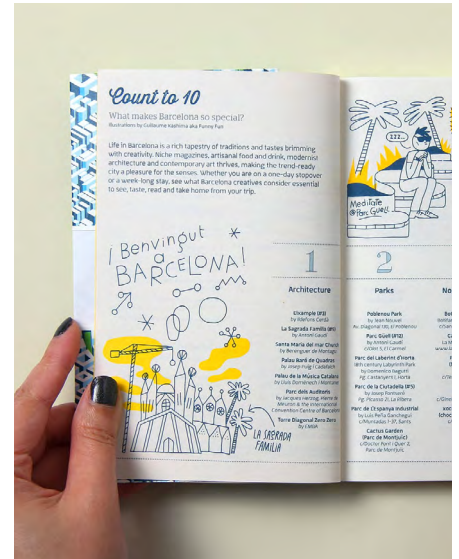 Count to 10
What makes Barcelona so special?
Illustrations by Guillaume Kashima aka Funny Fun
Life in Barcelona is a rich tapestry of traditions and tastes brimming
with creativity. Niche magazines, artisanal food and drink, modernist
architecture and contemporary art thrives, making the trend-ready
city a pleasure for the senses. Whether you are on a one-day stopover
or a week-long stay, see what Barcelona creatives consider essential
to see, taste, read and take home from your trip.
¡Benvingut
a
BARCELONA!
LA SAGRADA
FAMILIA
1
Architecture
L'Eixample (#3)
by Ildefons Cerdà
La Sagrada Família (#6)
by Antoni Gaudí
Santa Maria del mar Church
by Berenguer de Montagut
Palau Baró de Quadras
by Josep Puig i Cadafalch
Palau de la Música Catalana
by Lluís Domènech i Montaner
Parc dels Auditoris
by Jacques Herzog, Pierre de
Meuron & the International
Convention Centre of Barcelona
Torre Diagonal Zero Zero
by EMBA
ZZZ...
Meditate
@Parc Güell
2
Parks
Poblenou Park
by Jean Nouvel
Av. Diagonal 130, El Poblenou
Parc Güell (#12)
by Antoni Gaudí
El Carmel
Parc del Laberint d'Horta
18th century Labyrinth Park
by Domenico Bagutti
Pg. Castanyers 1, Horta
Parc de la Ciutadella (#5)
by Josep Fontserè
Pg. Picasso 21, La Ribera
Parc de L'Espanya Industrial
by Luis Peña Ganchegui
c/Muntadas 1-37, Sants
Cactus Garden
(Parc de Montjuïc)
Parc de Montjuïc